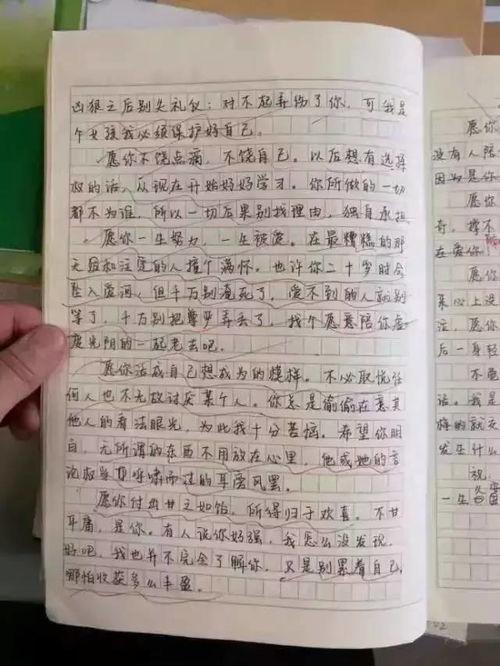 凶狠之后别失礼仪：对不起弄伤了你，可我是
个女孩我必须保护好自己。
愿你不饶点病，不饶自己。以后想有选择
权的话，从现在开始好好学习。你所做的一切
都不为谁，所以一切后果别找理由，独自承担
愿你一生努力，一生被爱。在最糟糕的那
天后和注定的人撞个满怀。也许你二十岁时会
坠入爱河，但千万别淹死了，爱不到的人就别
等了，千万别把尊严弄丢了，找个愿意陪你虚
度光阴的一起老去吧。
愿你活成自己想成为的模样。不必取悦任
何人也不无故讨厌某个人。你总是偷偷在意其
他人的看法眼光，为此我十分苦恼。希望你明
白，无所谓的东西不用放在心里，他或她的言
论权当呼啸而过的耳旁风罢。
愿你付出甘之如饴，所得归于欢喜。不甘
平庸，是你。有人说你好强，我怎么没发现，
好吧，我也并不完全了解你，只是别累着自己，
哪怕收获多么丰盈。
愿你
没有人陪
因为是你
愿你
奇，撑不
在爱你
愿你
某心上没
注，愿你
后一身轻
不要
话。我是
悔的就
发生什么
祝
一生